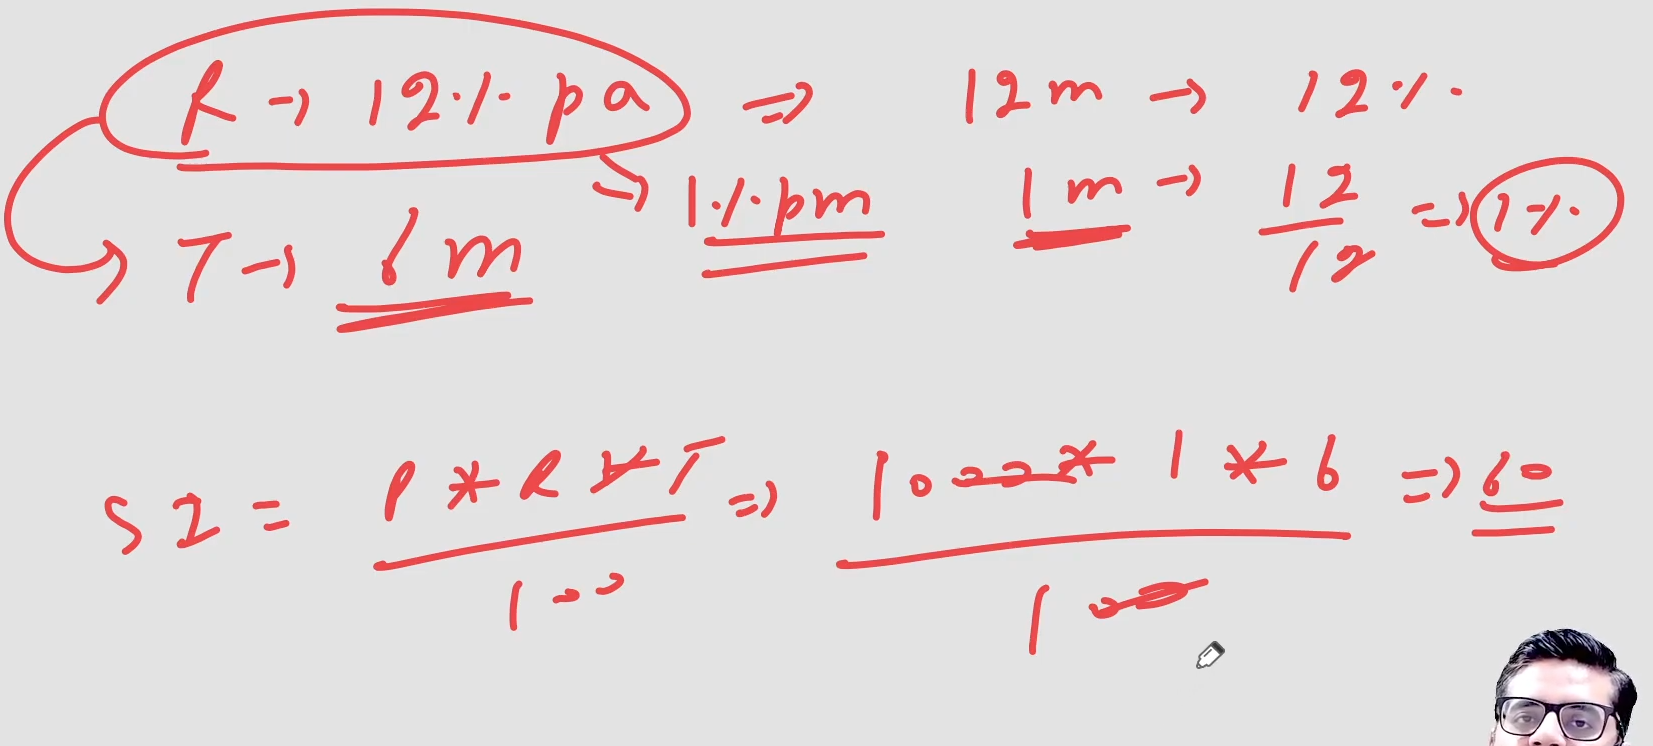 R → 12% pa ⇒ 12m → 12%
→ 1% pm 1m → 12/12 ⇒ 1%
T → 6m
SI = P * R * T / 100 ⇒ 1000 * 1 * 6 / 100 ⇒ 60